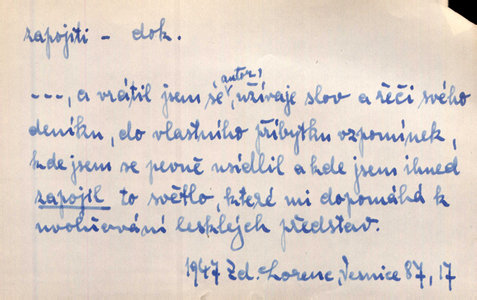 zapojiti – dok.
autor,
---, a vrátil jsem se, užívaje slov a řečí svého
deníku, do vlastního příbytku vzpomínek,
kde jsem se pevně usídlil a kde jsem ihned
zapojil to světlo, které mi dopomáhá k
uvolňování lesklejch představ.
1947 Zd. Lorenc, Vesnice 87, 17